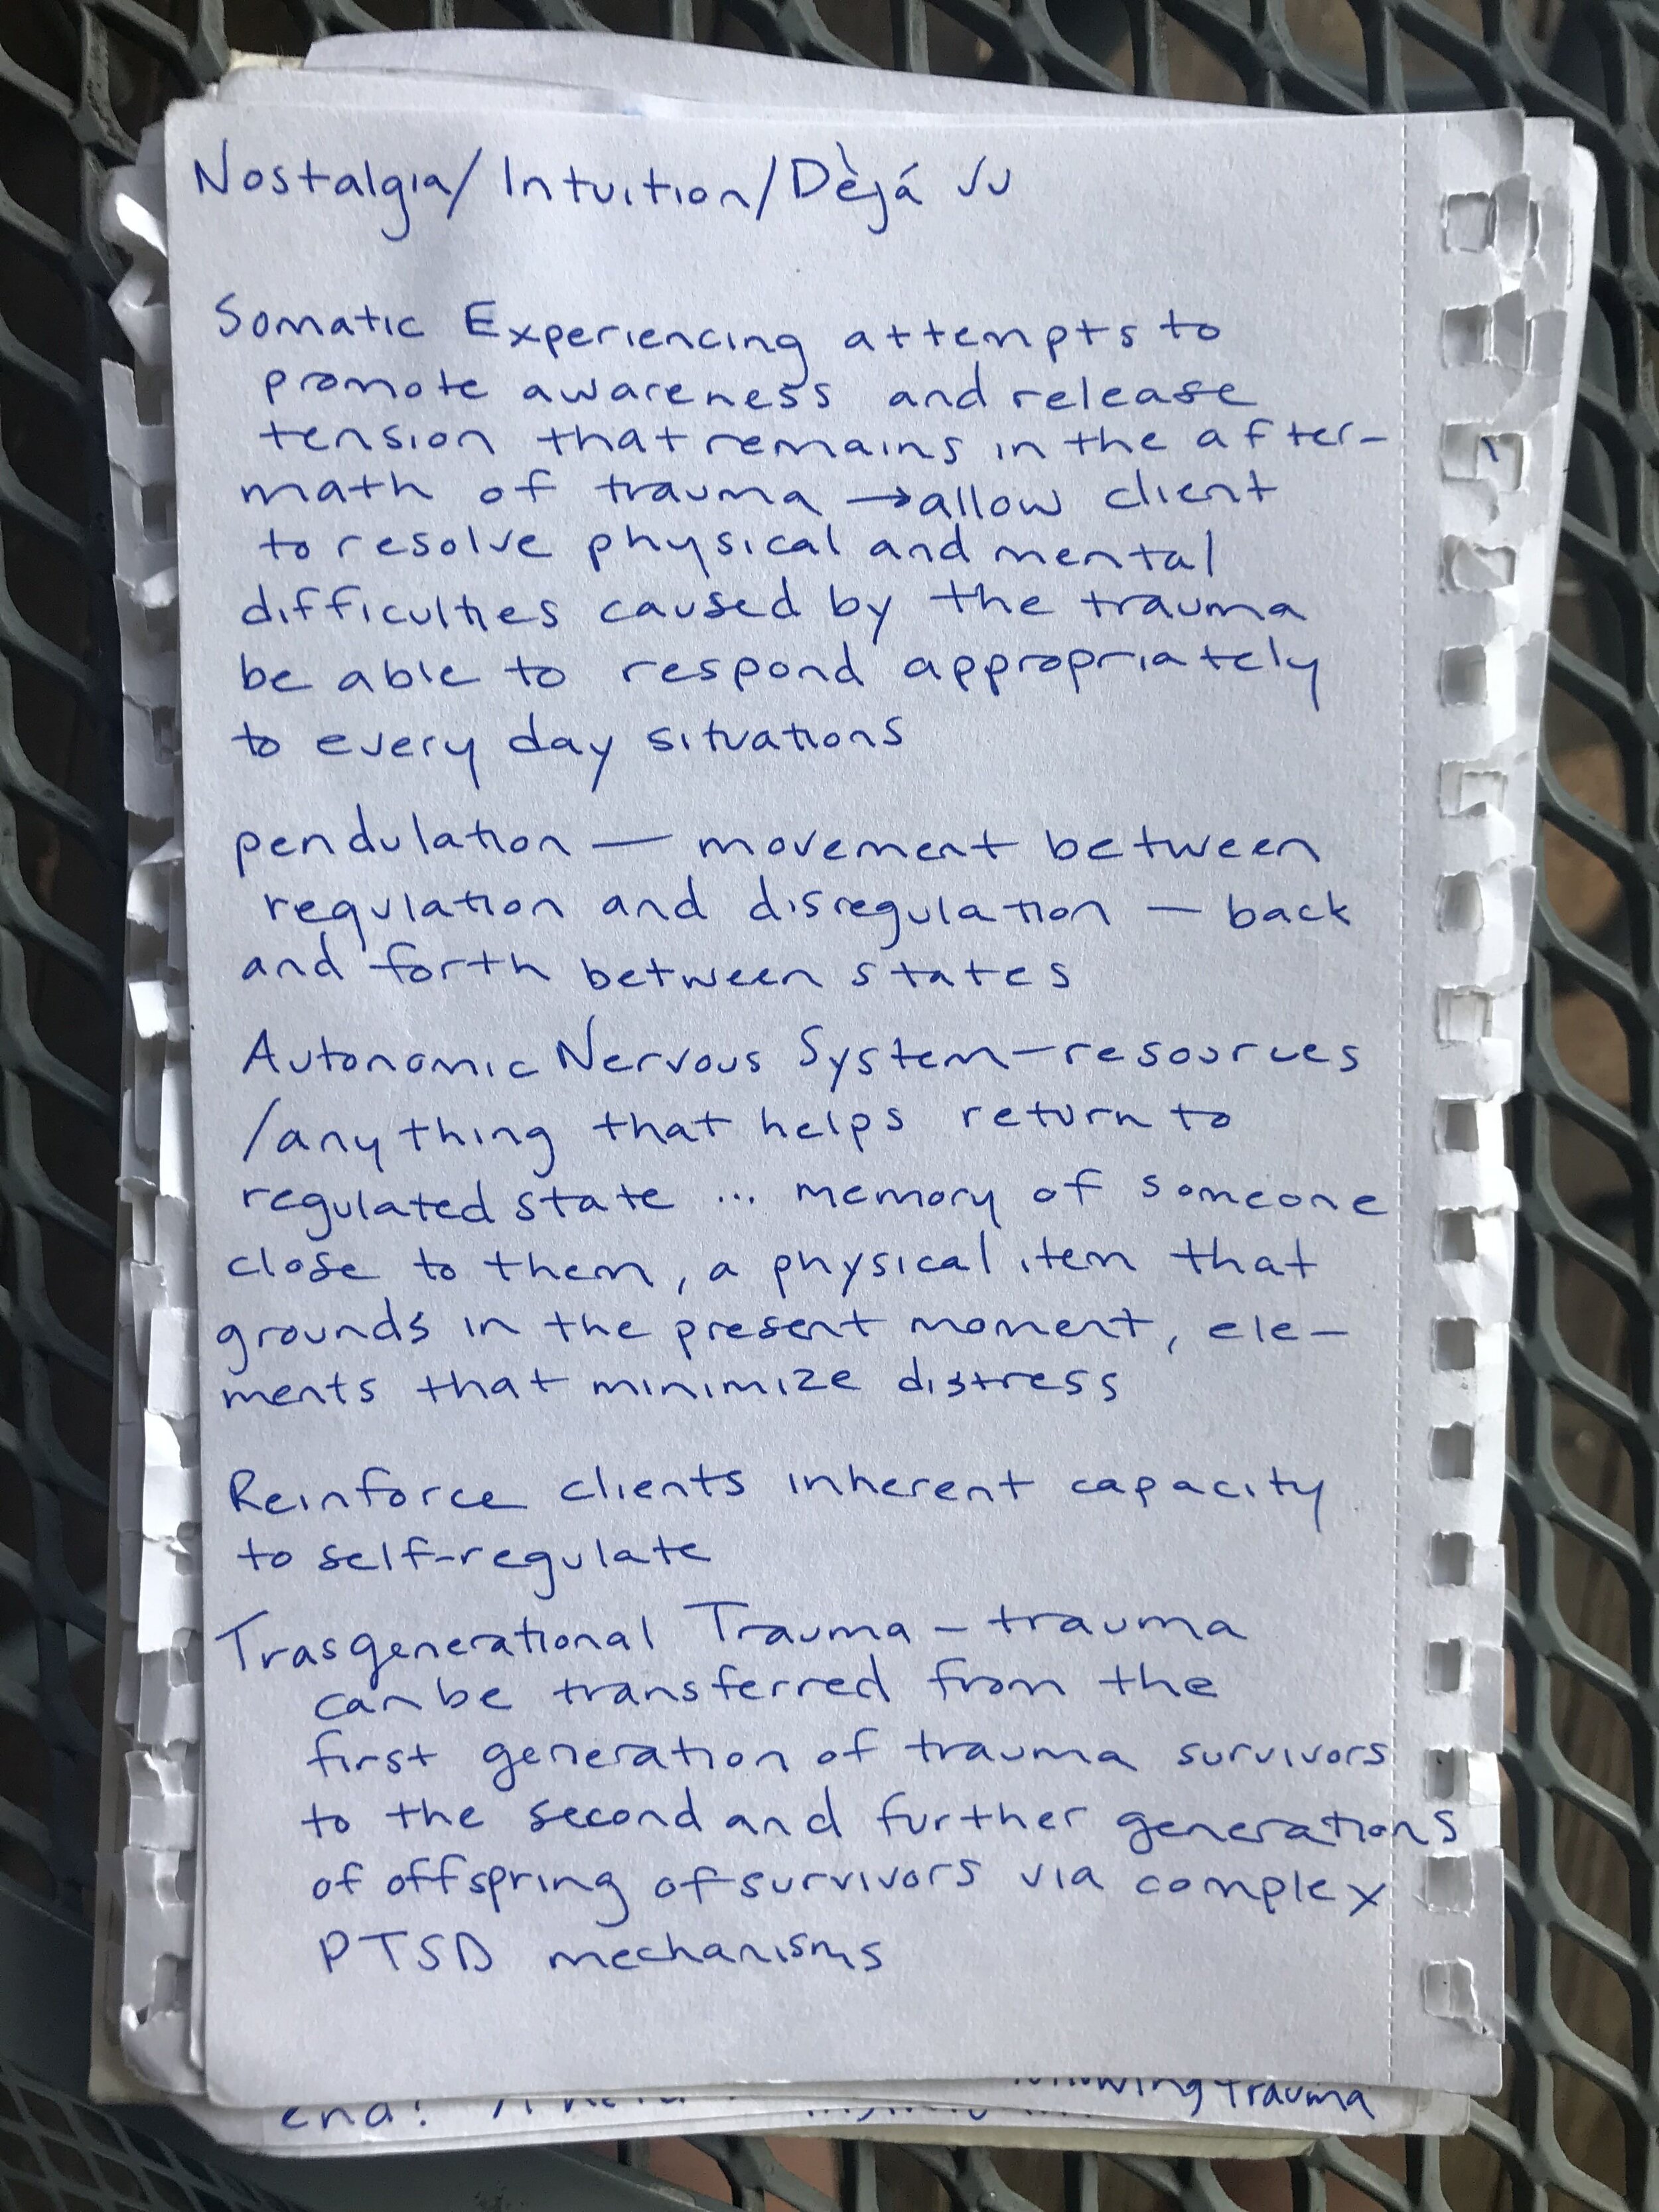 Nostalgia/Intuition/Dèjá Vu
Somatic Experiencing attempts to
promote awareness and release
tension that remains in the after-
math of trauma → allow client
to resolve physical and mental
difficulties caused by the trauma
be able to respond appropriately
to every day situations
pendulation — movement between
regulation and disregulation — back
and forth between states
Autonomic Nervous System - resources
/anything that helps return to
regulated state ... memory of someone
close to them, a physical item that
grounds in the present moment, ele-
ments that minimize distress
Reinforce clients inherent capacity
to self-regulate
Trasgenerational Trauma - trauma
can be transferred from the
first generation of trauma survivors
to the second and further generations
of offspring of survivors via complex
PTSD mechanisms
end! trauma